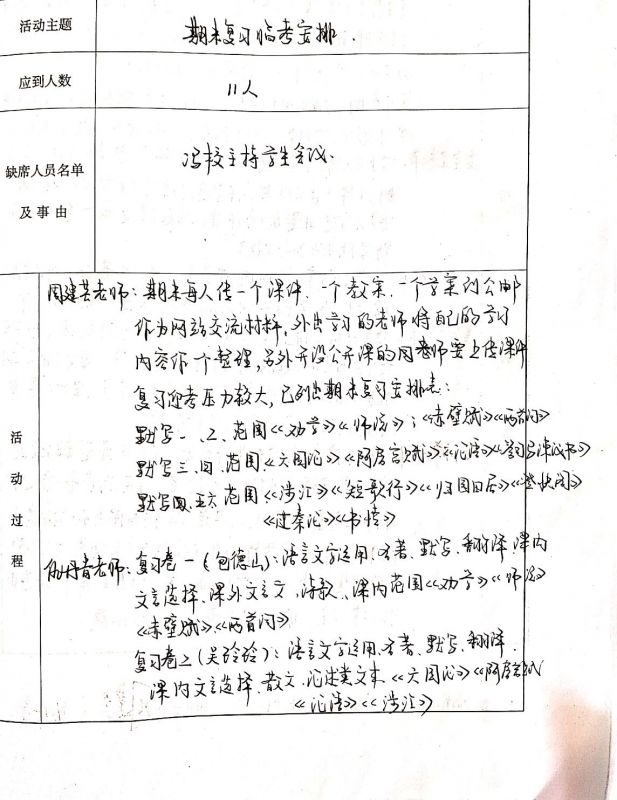 活动主题 期末复习临考安排.
应到人数 11人
缺席人员名单
及事由 冯校主持学生会议.
活动过程
周建芸老师:期末每人传一个课件、一个教案、一个学案到公邮
作为网站交流材料,外出学习的老师将自己的学习
内容作个整理,另外开设公开课的同老师要上传课件
复习迎考压力较大,已列出期末复习安排表:
默写一、二、范围《劝学》《师说》;《赤壁赋》《兰亭》
默写三、四、范围《六国论》《阿房宫赋》《论语》《答司马谏议书》
默写四、五六范围《涉江》《短歌行》《归园田居》《登快阁》
《过秦论》《书愤》
丹青老师:复习卷一(包德山):语言文字运用、名著、默写、翻译课内
文言选择、课外文言文、诗歌、课内范围《劝学》《师说》
《赤壁赋》、《兰亭》
复习卷二(吴玲玲):语言文字运用、名著、默写、翻译、
课内文言选择、散文、论述类文本《六国论》《阿房宫赋》
《论语》《涉江》